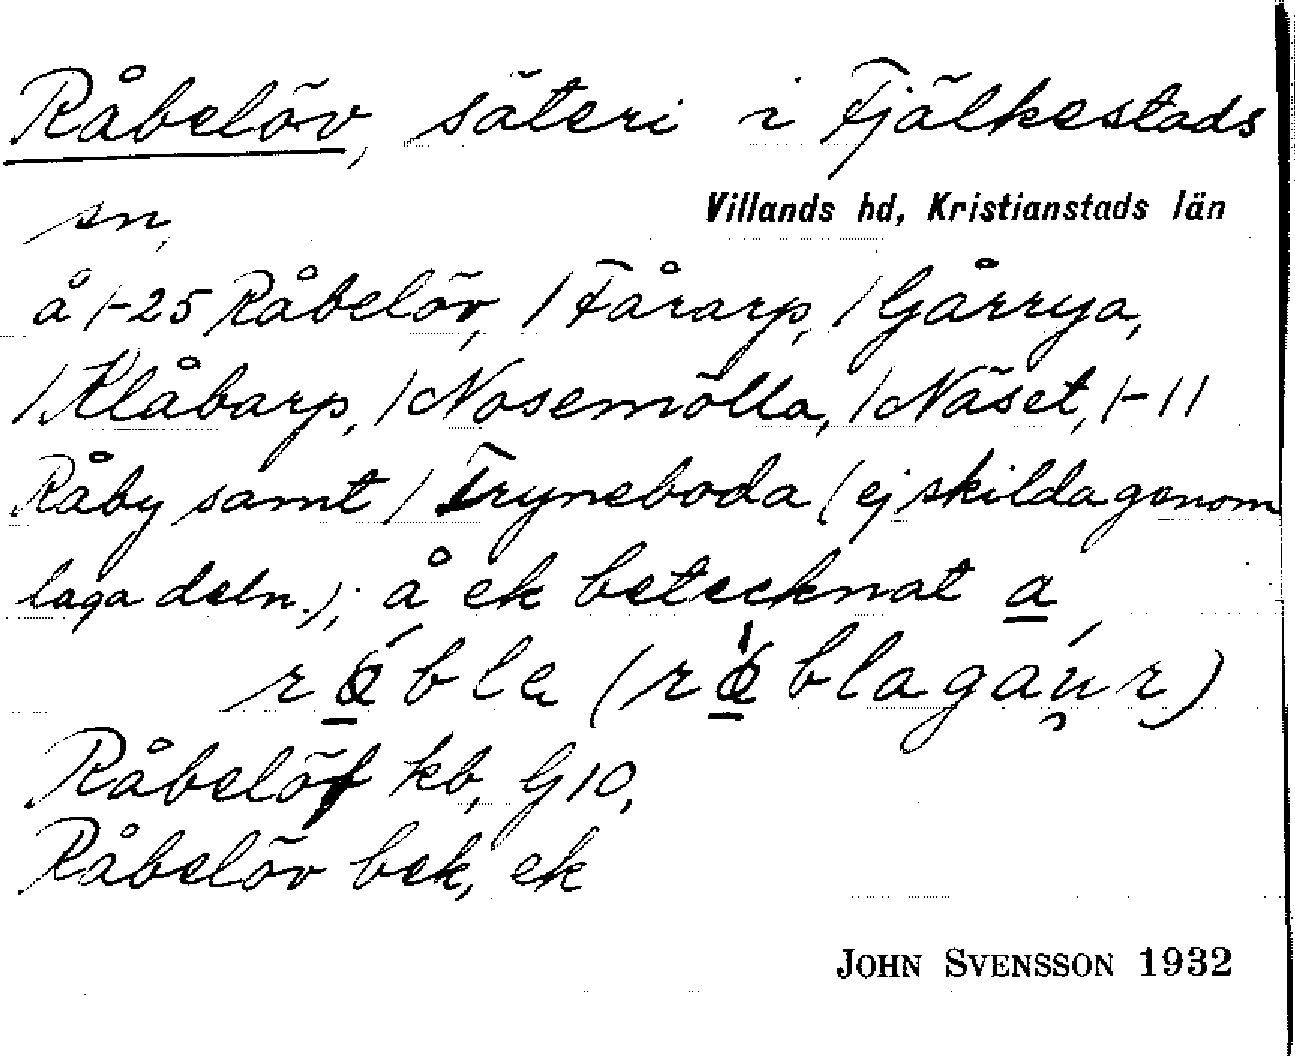 Råbelöv, säteri i Fjälkestads
sn,
Villands hd, Kristianstads län
å 1-25 Råbelöv, 1 Fårarp, 1 Gårrya,
1 Klåbarp, 1 Nosemölla, 1 Näset, 1-11
Råby samt 1 Tryneboda (ej skilda genom
laga deln.); å ek betecknat a
Råbelöf kb, G10,
Råbelöv bek, ek
JOHN SVENSSON 1932